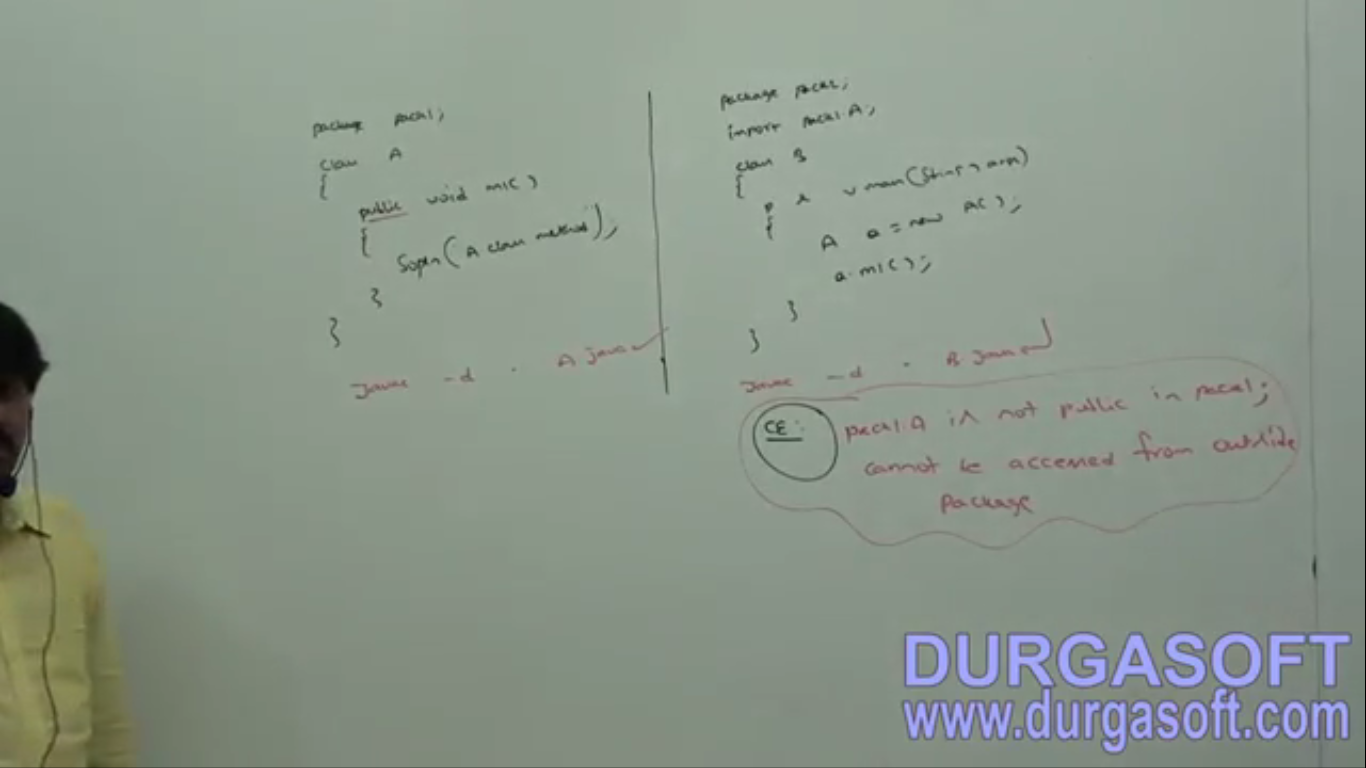 package pack1;
class A
{
public void m1()
{
Sopln(A class method);
}
}
javac -d . A.java
package pack2;
import pack1.A;
class B
{
p s v main(String[] args)
{
A a = new A();
a.m1();
}
}
javac -d . B.java
CE: pack1.A is not public in pack1;
cannot be accessed from outside
package
DURGASOFT
www.durgasoft.com